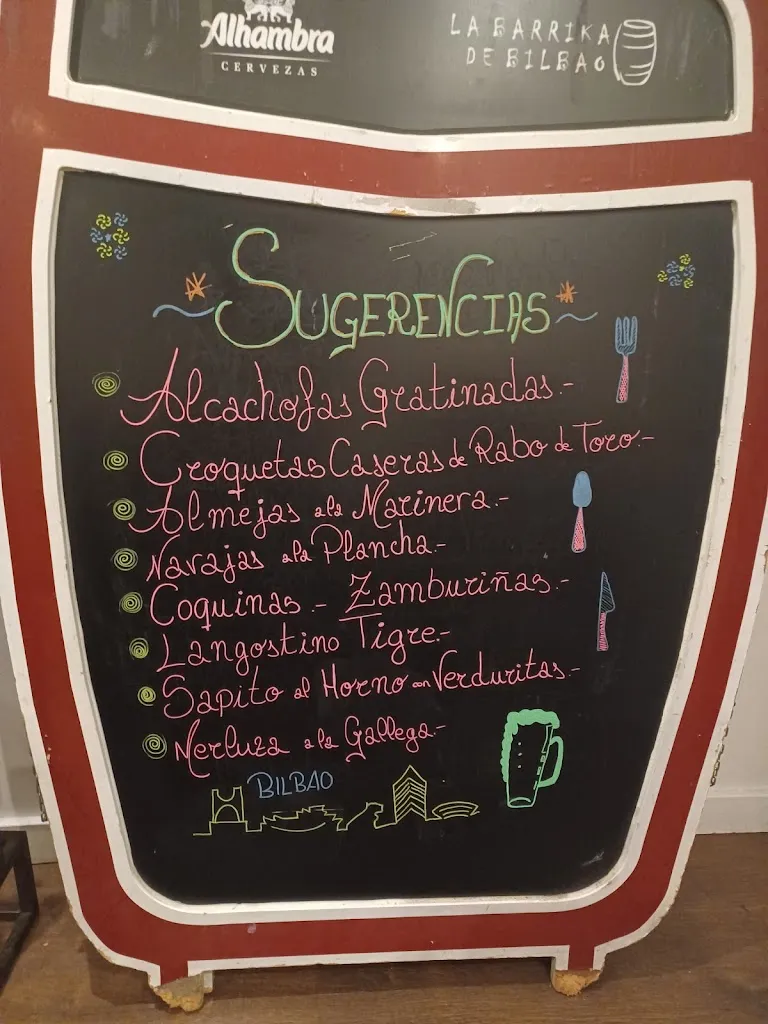 Alhambra
CERVEZAS
LA BARRIKA
DE BILBAO
SUGERENCIAS
Alcachofas Gratinadas.-
Croquetas Caseras de Rabo de Toro.-
Almejas a la Marinera.-
Navajas a la Plancha.-
Coquinas.- Zamburiñas.-
Langostino Tigre.-
Sapito al Horno con Verduritas.-
Merluza a la Gallega.-
BILBAO